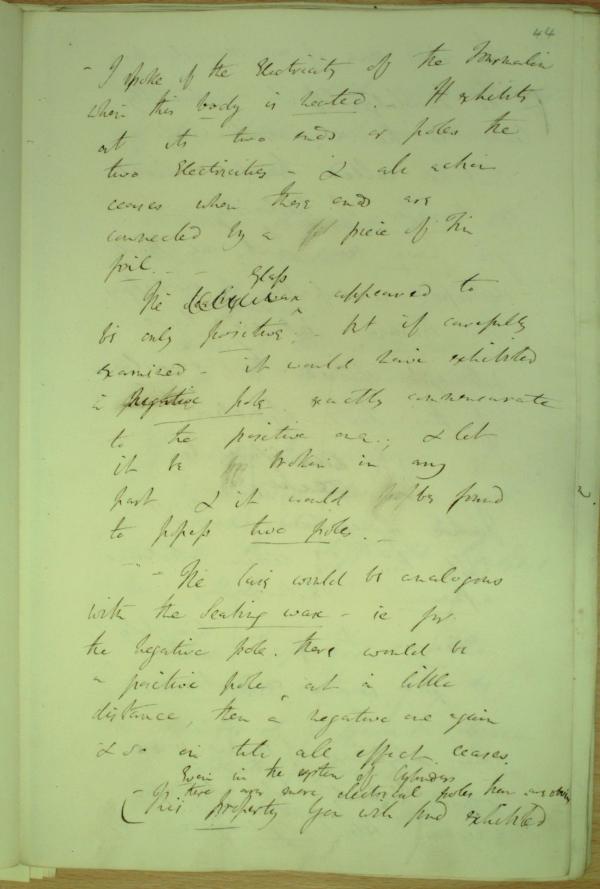 44
- I spoke of the Electricity of the Tourmalin
when this body is heated. It exhibits
at its two ends or poles the
two Electricities - & all action
ceases when these ends are
connected by a piece of Tin
foil. -
Glass
The appeared to
be only positive; - but if carefully
examined - it would have exhibited
a negative pole exactly commensurate
to the positive one; & let
it be broken in any
part & it would be found
to possess two poles. -
- The case would be analogous
with the Sealing wax - ie for
the negative pole. there would be
a positive pole at a little
distance, then a negative one again
& so on till all effect ceases.
Even in the system of Cylinders
there are more electrical poles than
(- This property you will find exhibited